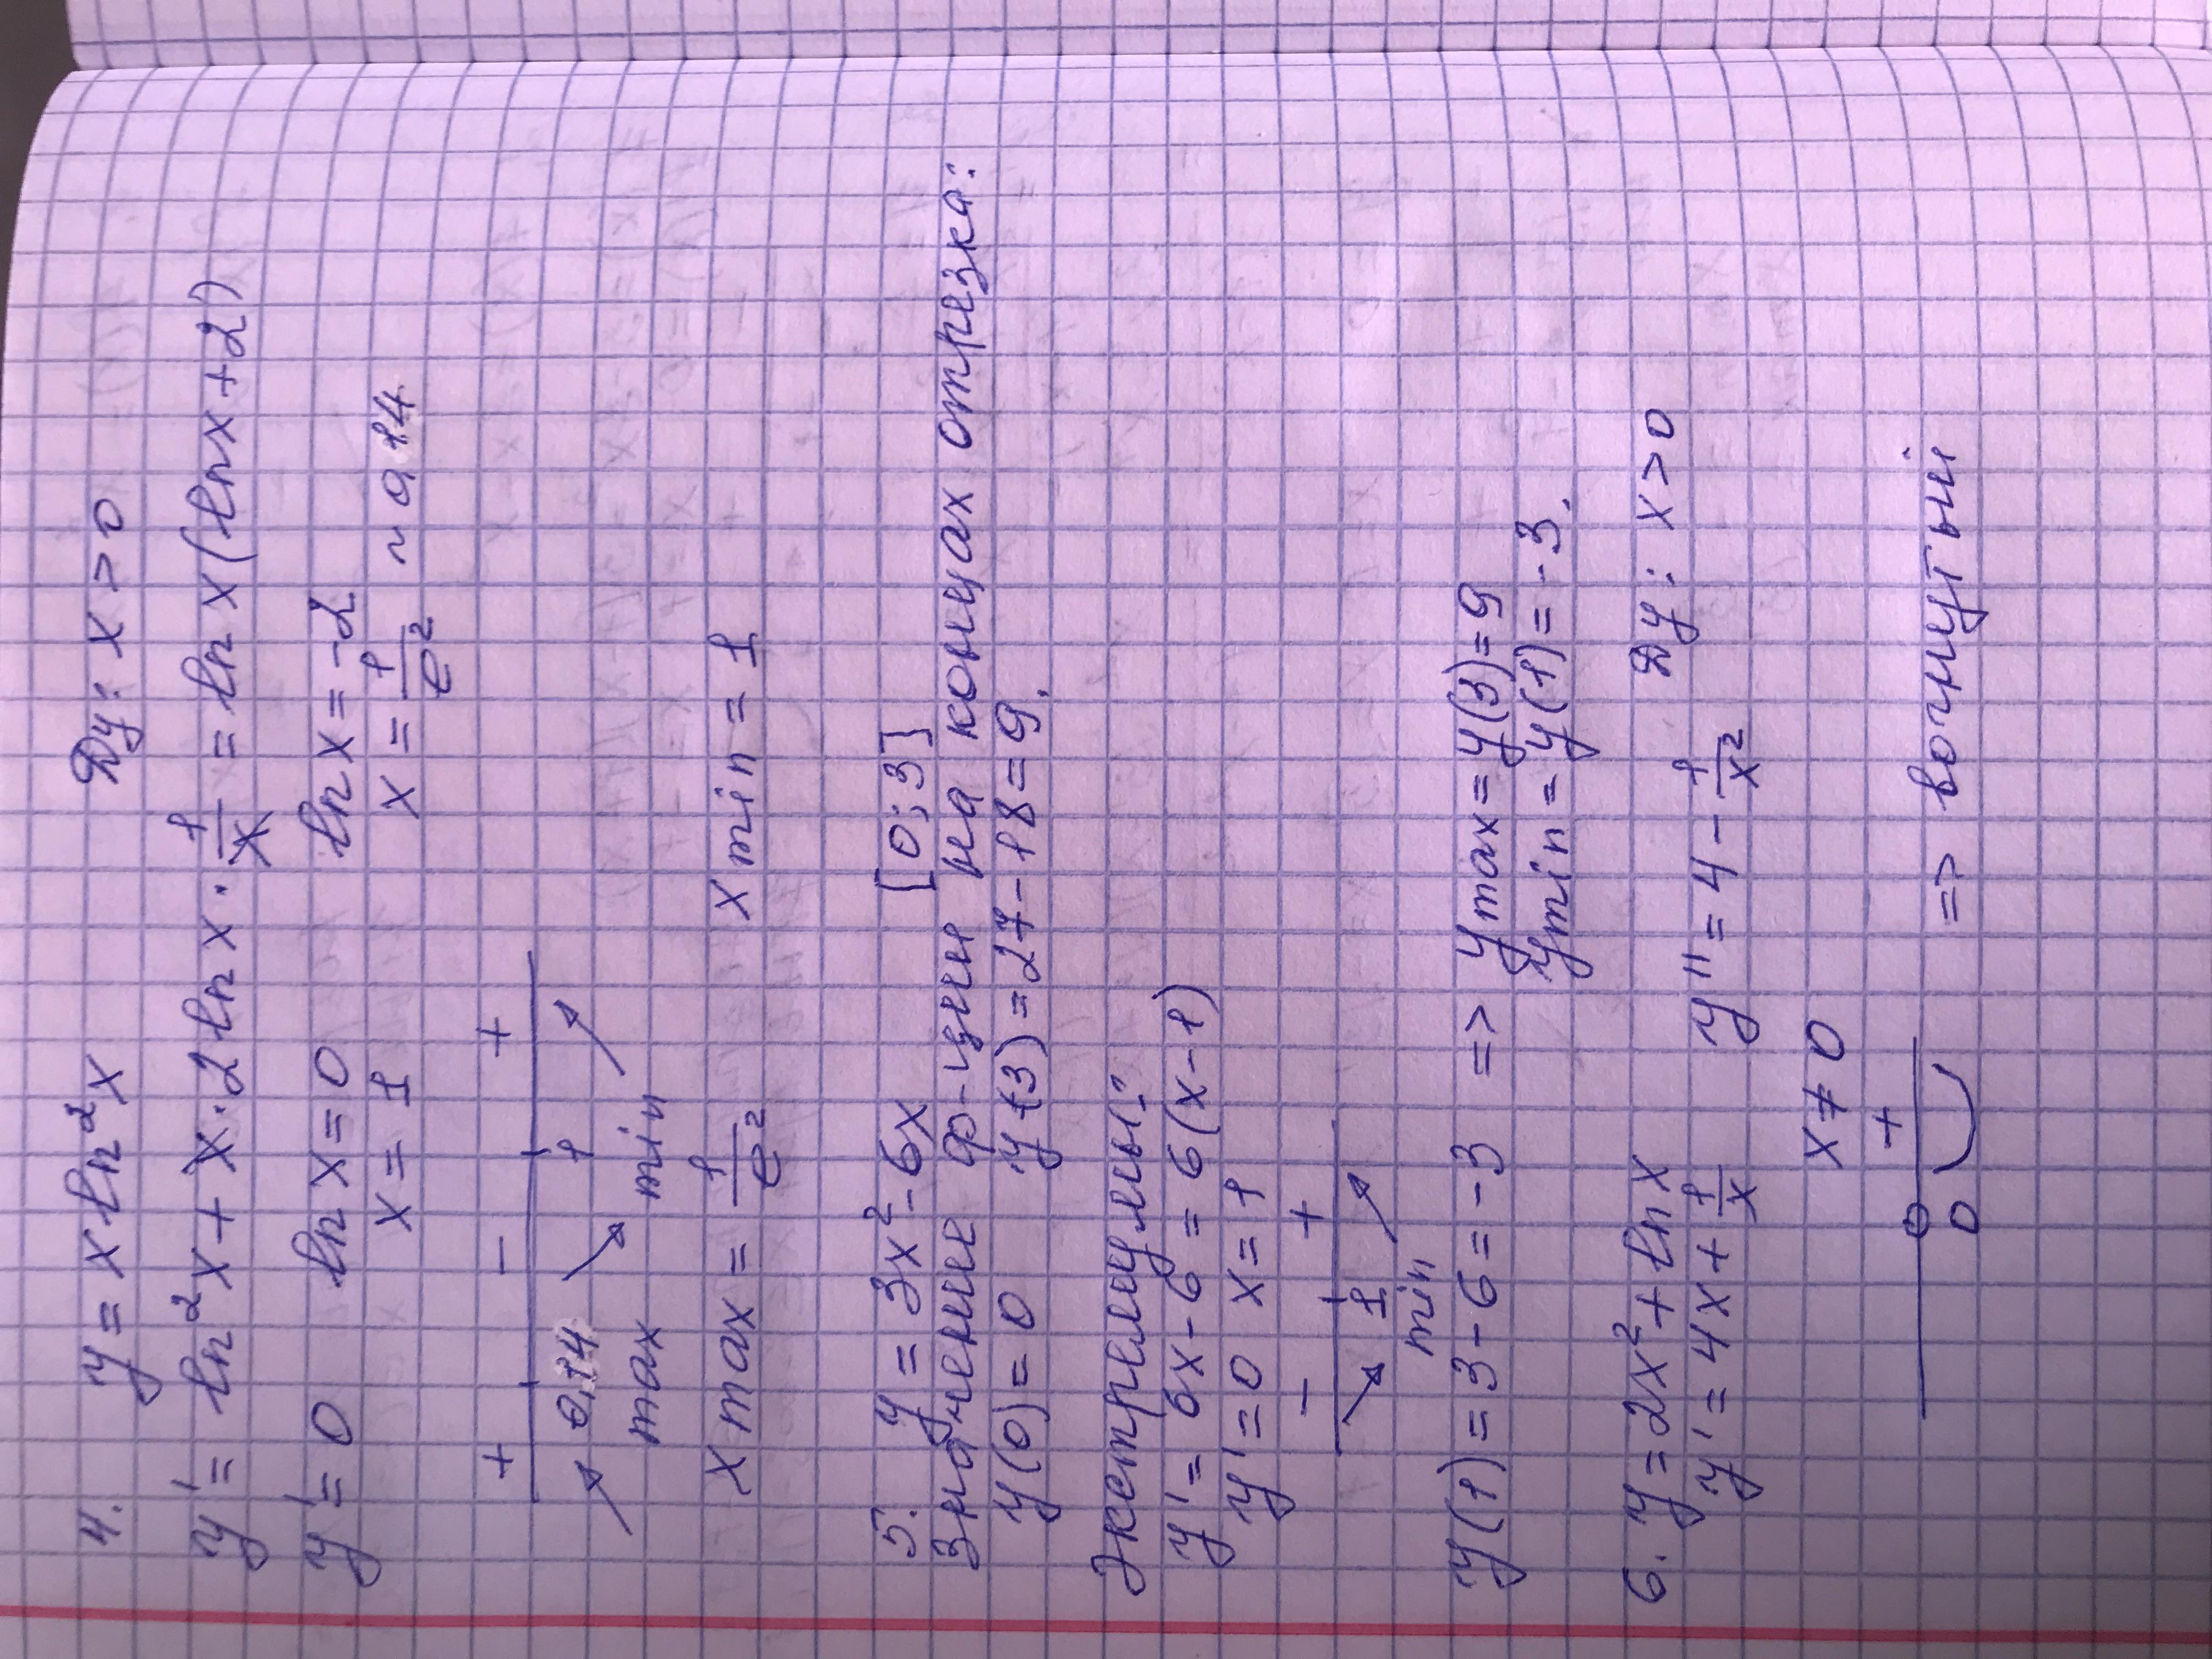 4. y = x ln²x Dy: x > 0
y' = ln²x + x · 2 ln x · 1/x = ln x (ln x + 2)
y' = 0 ln x = 0 ln x = -2
x = 1 x = 1/e² ~ 0,14
+ - +
0,14 1
max min
x max = 1/e² x min = 1
5. y = 3x² - 6x [0; 3]
Значение ф-ции на концах отрезка:
y(0) = 0 y(3) = 27 - 18 = 9.
Экстремумы:
y' = 6x - 6 = 6(x - 1)
y' = 0 x = 1
- +
1
min
y(1) = 3 - 6 = -3 => y max = y(3) = 9
y min = y(1) = -3.
6. y = 2x² + ln x Dy: x > 0
y' = 4x + 1/x y'' = 4 - 1/x²
x ≠ 0
+
0 => вогнутый